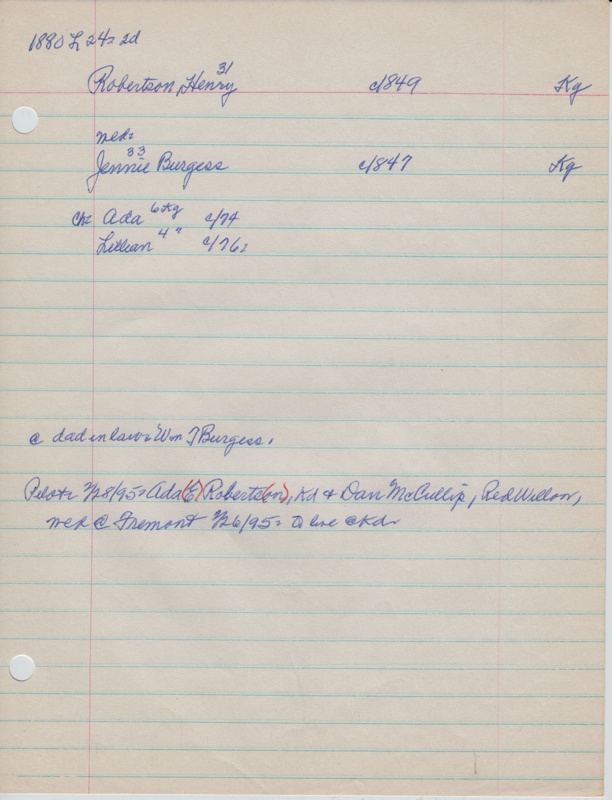 1880 L 24s 2d
Robertson, Henry 31 c/1849 Kg
med:
Jennie 33 Burgess c/1847 Kg
Ch: Ada 6 Kg c/74
Lillian 4 " c/76:
@ dad in laws Wm T Burgess.
Pilot: 2/28/95: Ada (E) Roberts(on), Kd & Dan McCullip, Red Willow,
med @ Fremont 2/26/95: to live @ Kd